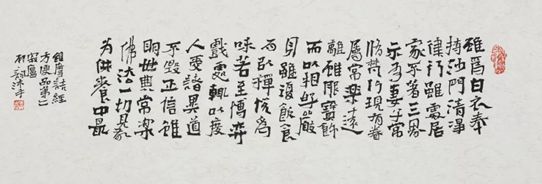 雖爲白衣奉
持沙門清淨
律行雖處居
家不著三界
示有妻子常
脩梵行現有眷
屬常樂遠
離雖服寶飾
而以相好嚴
身雖復飲食
而以禪悅為
味若至博弈
戲處輒以度
人受諸異道
不毀正信雖
明世典常樂
佛法一切見敬
為供養中最
維摩詰經
方便品第二